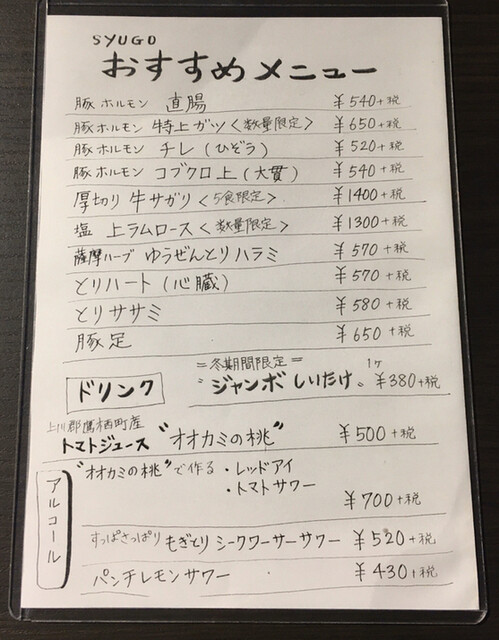 SYUGO
おすすめメニュー
豚ホルモン 直腸 ¥540+税
豚ホルモン 特上ガツ<数量限定> ¥650+税
豚ホルモン チレ(ひぞう) ¥520+税
豚ホルモン コブクロ上(大貫) ¥540+税
厚切り 牛サガリ<5食限定> ¥1400+税
塩 上ラムロース<数量限定> ¥1300+税
薩摩ハーブ ゆうぜんとりハラミ ¥570+税
とりハート(心臓) ¥570+税
とりササミ ¥580+税
豚足 ¥650+税
=冬期間限定=
ジャンボしいたけ。1ヶ ¥380+税
ドリンク
上川郡鷹栖町産
トマトジュース "オオカミの桃" ¥500+税
アルコール
"オオカミの桃"で作る ・レッドアイ
・トマトサワー
¥700+税
すっぱさっぱり もぎとり シークワーサーサワー ¥520+税
パンチレモンサワー ¥430+税